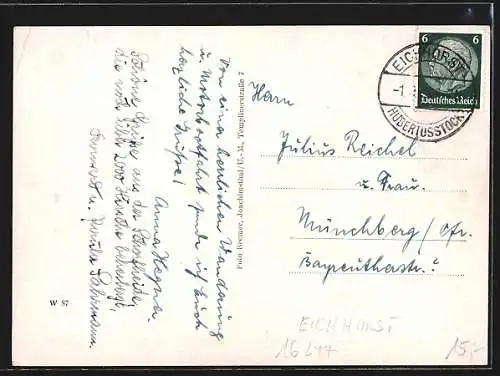 Von einer herrlichen Wanderung
u. Motorbootfahrt sende ich Euch
herzliche Grüße!
Anna Hegna.
Schöne Grüße aus der Schorfheide,
die noch über 2000 Hirsche beherbergt,
u. Ursula
W 87
Foto Bremer, Joachimsthal/U.-M., Templinerstraße 7
EICHHORST
-1.
HUBERTUSSTOCK
6
6
Deutsches Reich
Herrn
Julius Reichel
u. Frau.
Münchberg / Ofr.
Bayreutherstr. 2
EICHHORST
16247
15,-